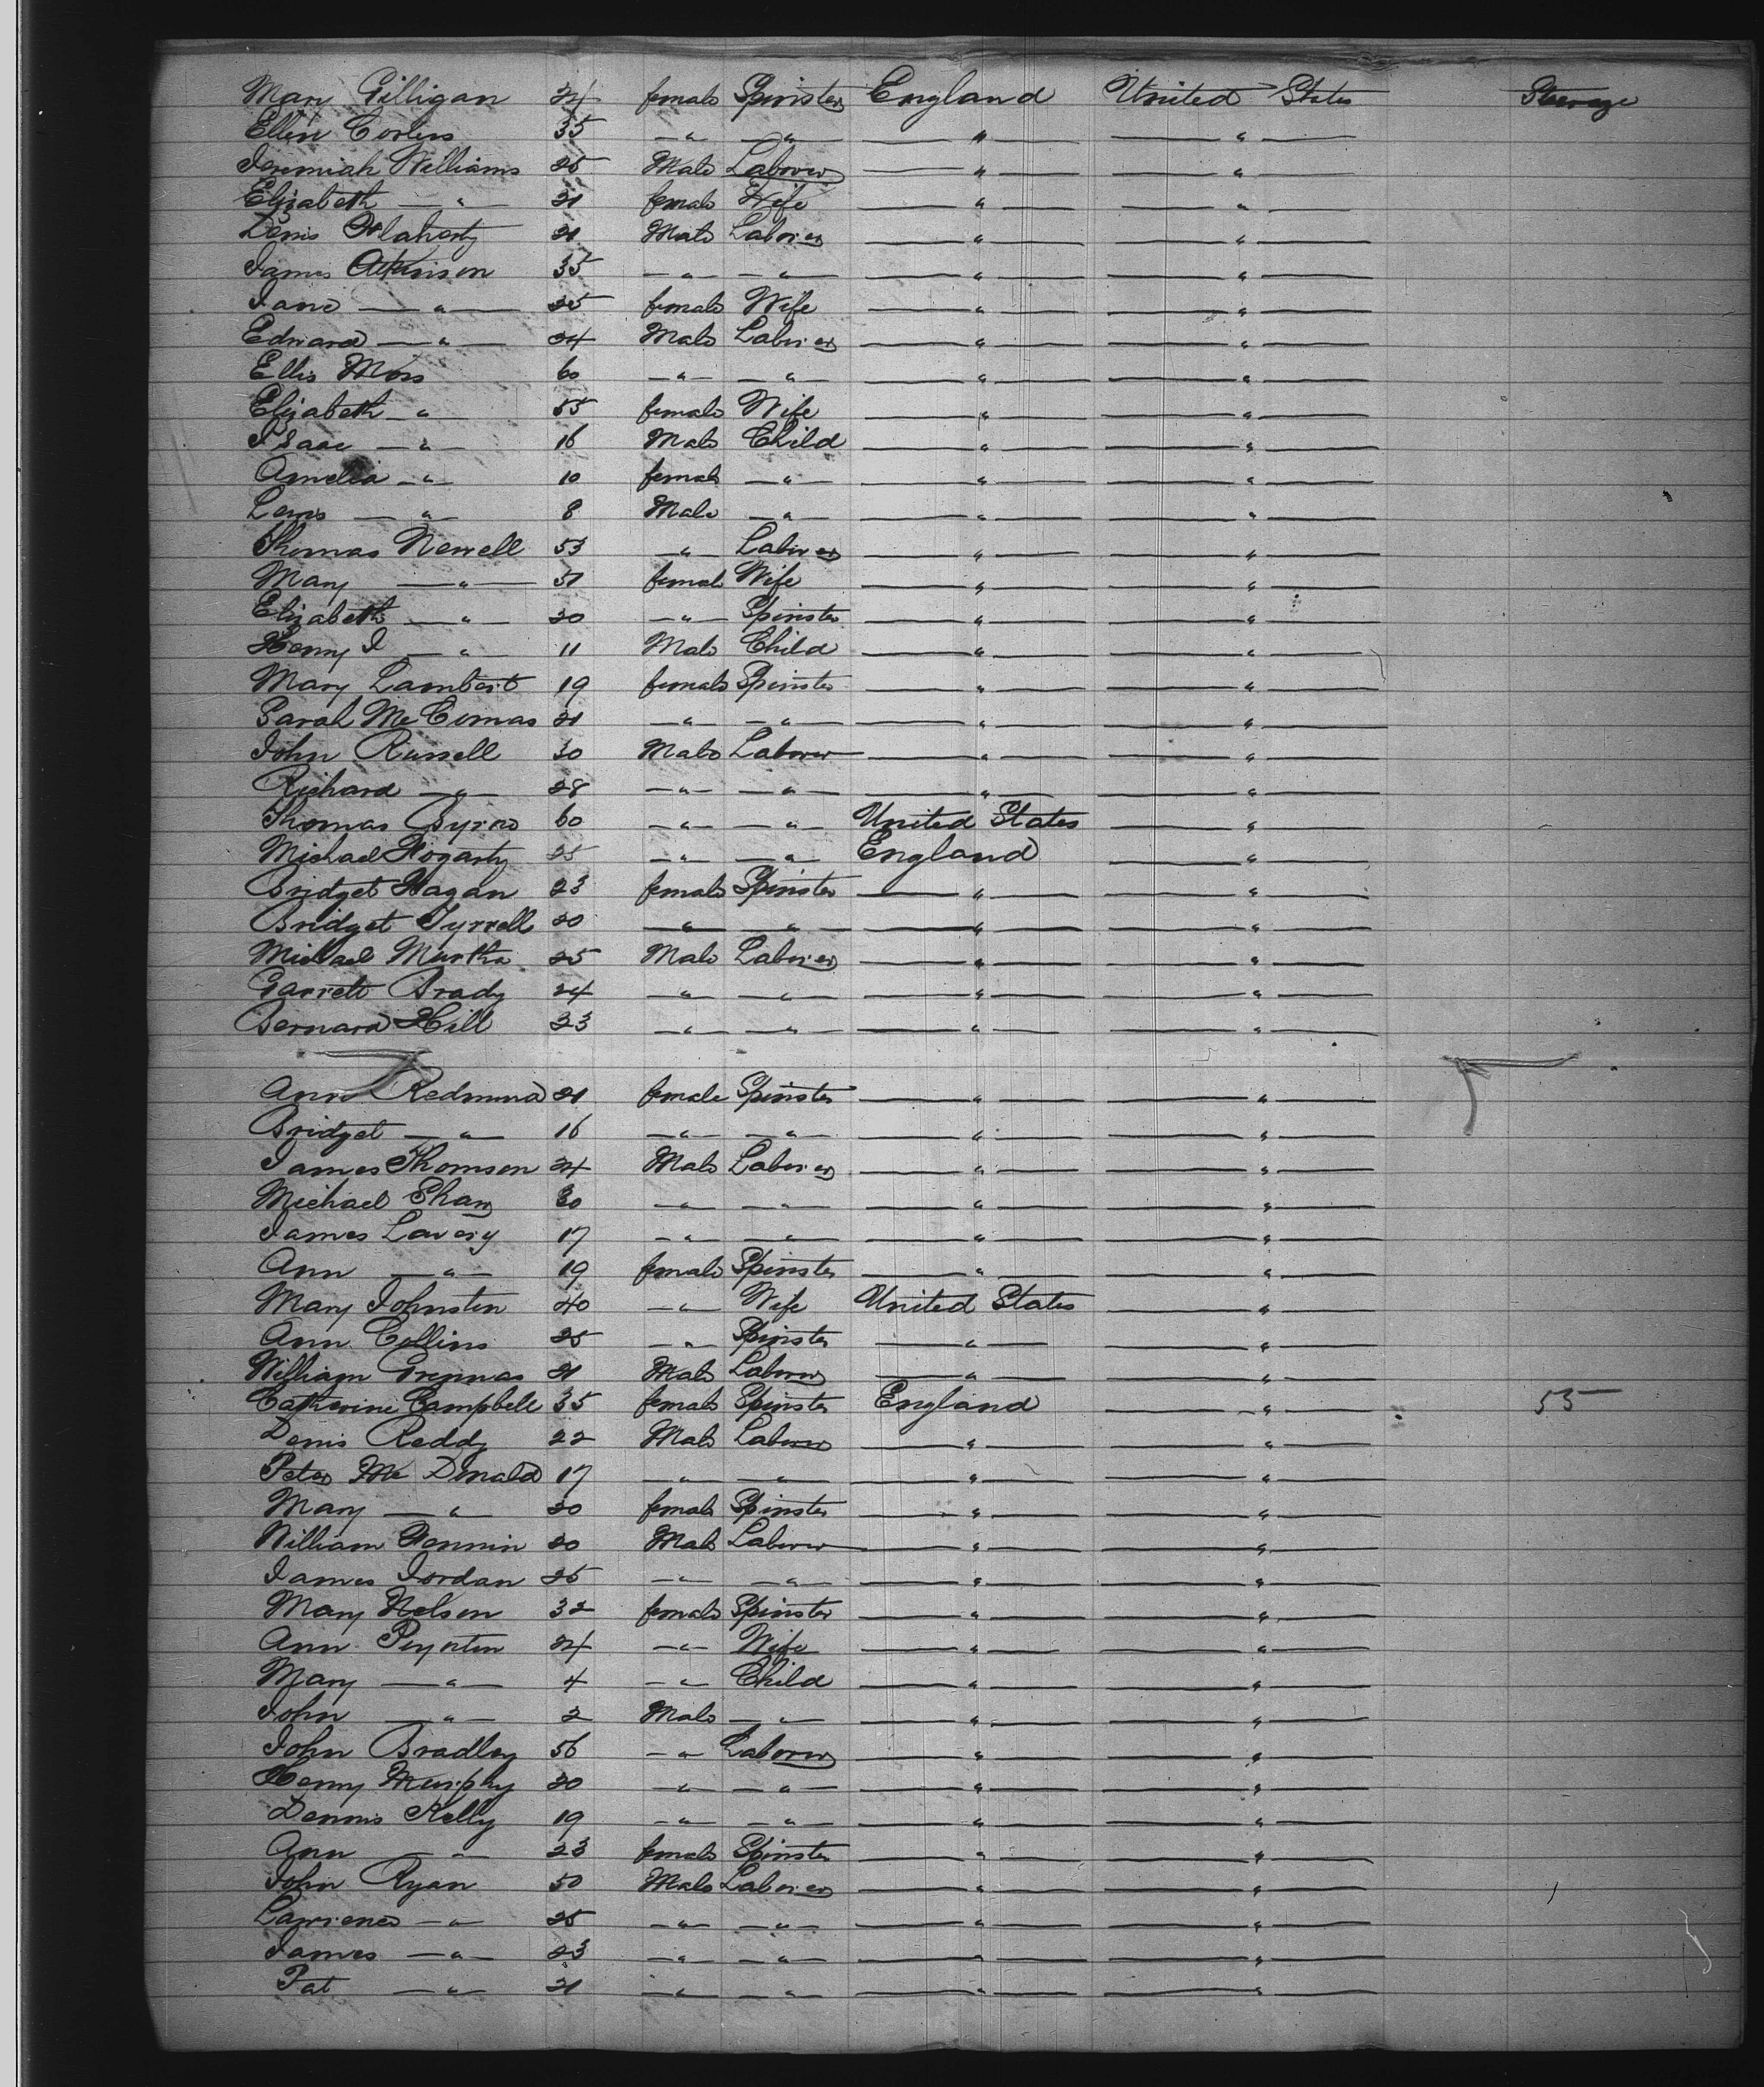 Mary Gilligan 24 female Spinster England United States Steerage
Ellen Corless 35 —"— —"— —"— —"—
Jeremiah Williams 25 Male Laborer —"— —"—
Elizabeth —"— 21 female Wife —"— —"—
Denis Flaherty 21 Male Laborer —"— —"—
James Atkinson 35 —"— —"— —"— —"—
Jane —"— 25 female Wife —"— —"—
Edward —"— 24 Male Laborer —"— —"—
Ellis Moss 60 —"— —"— —"— —"—
Elizabeth —"— 55 female Wife —"— —"—
Isaac —"— 16 Male Child —"— —"—
Amelia —"— 10 female —"— —"— —"—
Lewis —"— 8 Male —"— —"— —"—
Thomas Newell 53 —"— Laborer —"— —"—
Mary —"— 51 female Wife —"— —"—
Elizabeth —"— 20 —"— Spinster —"— —"—
Henry J —"— 11 Male Child —"— —"—
Mary Lambert 19 female Spinster —"— —"—
Sarah McComas 21 —"— —"— —"— —"—
John Russell 30 Male Laborer —"— —"—
Richard —"— 28 —"— —"— —"— —"—
Thomas Byrne 60 —"— —"— United States —"—
Michael Fogarty 25 —"— —"— England —"—
Bridget Hagan 23 female Spinster —"— —"—
Bridget Tyrrell 20 —"— —"— —"— —"—
Michael Murtha 25 Male Laborer —"— —"—
Garrett Brady 24 —"— —"— —"— —"—
Bernard Hill 23 —"— —"— —"— —"—
Ann Redmond 21 female Spinster —"— —"—
Bridget —"— 16 —"— —"— —"— —"—
James Thomson 24 Male Laborer —"— —"—
Michael Shaw 30 —"— —"— —"— —"—
James Lavery 17 —"— —"— —"— —"—
Ann —"— 19 female Spinster —"— —"—
Mary Johnston 40 —"— Wife United States —"—
Ann Collins 25 —"— Spinster —"— —"—
William 21 Male Laborer —"— —"—
Catherine Campbell 35 female Spinster England —"— 55
Denis Reddy 22 Male Laborer —"— —"—
Peter McDonald 17 —"— —"— —"— —"—
Mary —"— 20 female Spinster —"— —"—
William Fennin 20 Male Laborer —"— —"—
James Jordan 25 —"— —"— —"— —"—
Mary Nelson 32 female Spinster —"— —"—
Ann Poynton 24 —"— Wife —"— —"—
Mary —"— 4 —"— Child —"— —"—
John —"— 2 Male —"— —"— —"—
John Bradley 56 —"— Laborer —"— —"—
Henry Murphy 20 —"— —"— —"— —"—
Dennis Kelly 19 —"— —"— —"— —"—
Ann —"— 23 female Spinster —"— —"—
John Ryan 50 Male Laborer —"— —"—
Lawrence —"— 25 —"— —"— —"— —"—
James —"— 23 —"— —"— —"— —"—
Pat —"— 21 —"— —"— —"— —"—